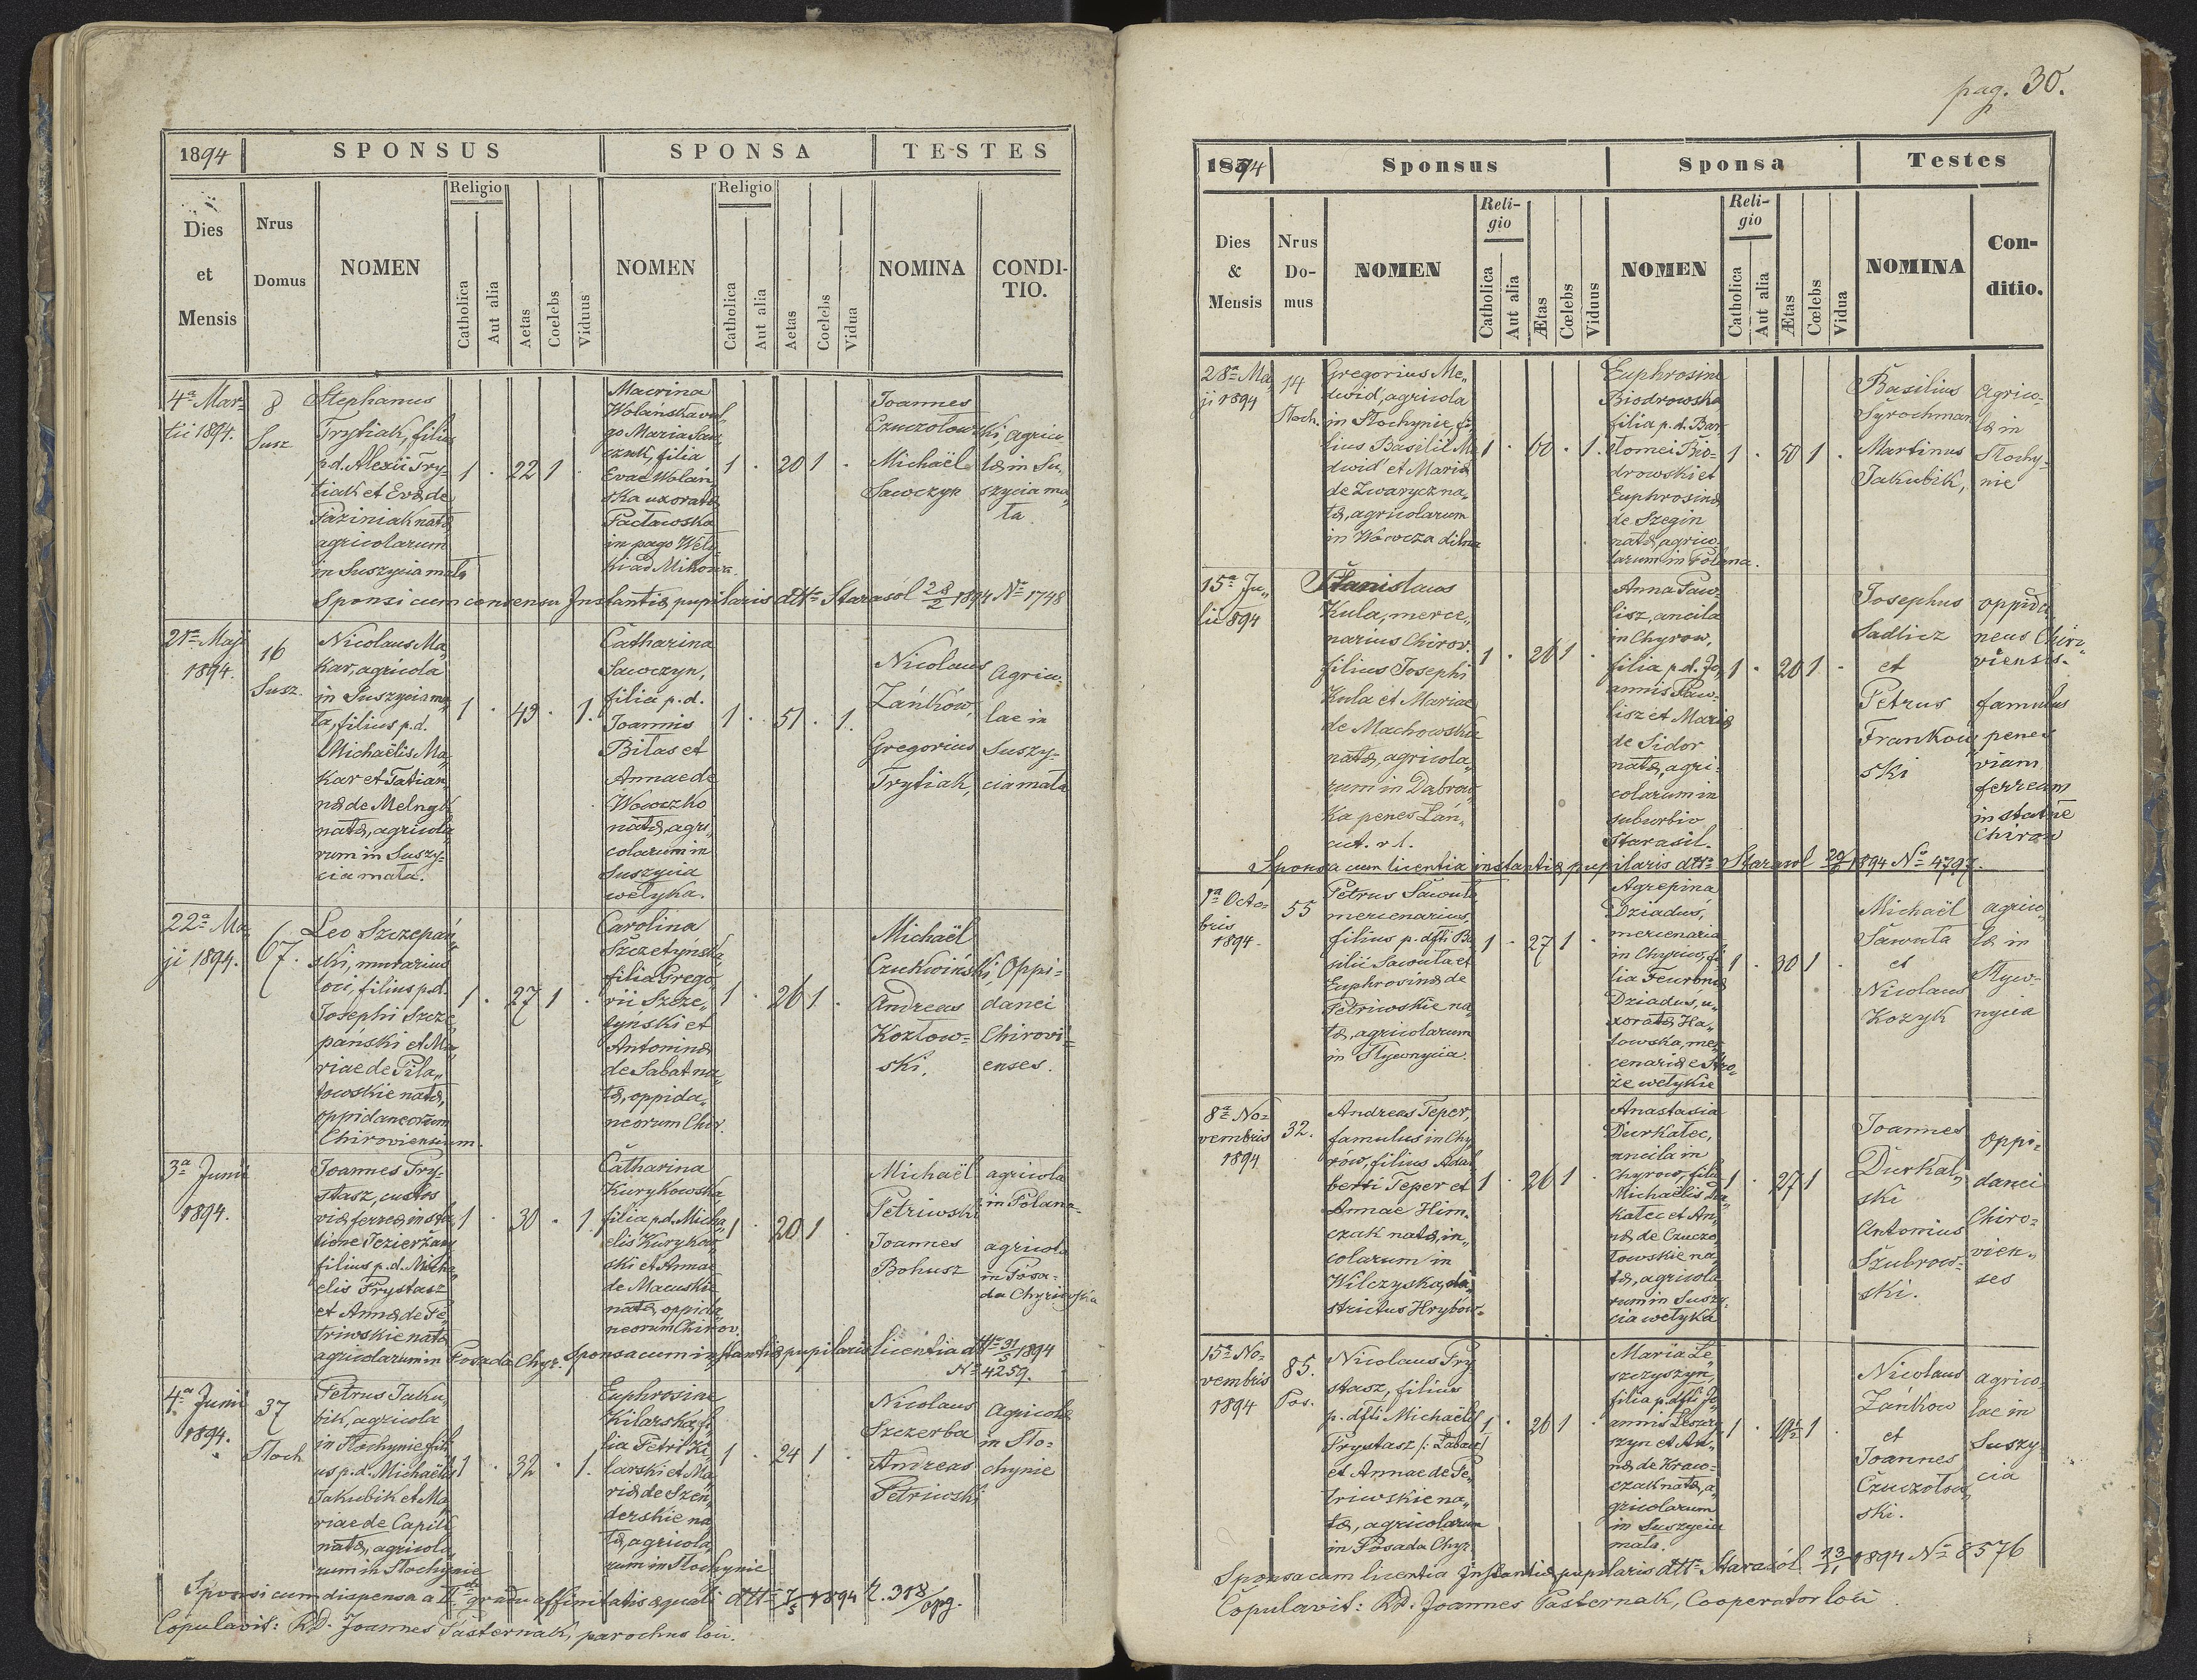 1894
SPONSUS
SPONSA
TESTES
Dies
et
Mensis
Nrus
Domus
NOMEN
Religio
Catholica
Aut alia
Aetas
Coelebs
Viduus
NOMEN
Religio
Catholica
Aut alia
Aetas
Coelebs
Vidua
NOMINA
CONDI-
TIO.
4ª Mar-
tii 1894.
8
Susz.
Stephanus
Trytiak, filius
p.d. Alexii Try-
tiak et Evæ de
Paziniak natæ
agricolarum
in Suszycia mała
1 . 22 1
Macrina
Wolańska vul
go Maria Saw
czuk, filia
Evae Wolań
ska uxoratæ
Pacławska
in pago Wely
ki ad Mikowa.
1 . 20 1 .
Joannes
Czuczołowski,
Michaël
Sawczyn
agrico
læ in Su„
szycia ma„
ła.
Sponsi cum consensu Instantiæ pupilaris dtto Starasól 28/2 1894 № 1748
21ª Maji
1894.
16
Susz.
Nicolaus Ma„
kar, agricola
in Suszycia ma„
ła, filius p.d.
Michaëlis Ma„
kar et Tatian„
næ de Melnyk
natæ, agricola„
rum in Suszy-
cia mała.
1 . 49 . 1.
Catharina
Sawczyn,
filia p.d.
Joannis
Bilas et
Annae de
Wowczko
natæ, agri„
colarum in
Suszycia
wełyka.
1 . 51 . 1.
Nicolaus
Zańków,
Gregorius
Trytiak,
Agrico-
lae in
Suszy-
cia mała
22ª Ma„
ji 1894.
67.
Leo Szczepań„
ski, murarius
loci, filius p.d.
Josephi Szcze„
pański et Ma„
riae de Piła„
towskie natæ,
oppidaneorum
Chiroviensium.
1 . 27 1 .
Carolina
Szczetyńska,
filia Grego„
rii Szcze„
tyński et
Antoninæ
de Sabat na„
tæ, oppida„
neorum Chir.
1 . 26 1 .
Michaël
Czukwiński,
Andreas
Kozłow-
ski.
Oppi-
danei
Chirovi-
enses.
3ª Junii
1894.
Joannes Pry-
stasz, custos
viæ ferreæ in sta„
tione Jezierżany
filius p.d. Micha„
elis Prystasz
et Annæ de Pe„
triwskie natæ
agricolarum in Posada Chyr.
1 . 30 . 1.
Catharina
Kurykowska,
filia p.d. Micha„
elis Kurykow„
ski et Annae
de Macuskie
natæ oppida„
neorum Chirov.
1 . 20 1 .
Michaël
Petriwski
Joannes
Bohusz
agricola
in Polana-
agricola
in Posa-
da Chyriwska
Sponsa cum instantiæ pupilaris licentia dtto 31/5 1894
№ 4259.
4ª Junii
1894.
37
Słoch.
Petrus Jaku„
bik, agricola
in Słochynie fili„
us p.d. Michaëlis
Jakubik et Ma„
riae de Capik
natæ, agricola„
rum in Słochynie
1 . 32 . 1.
Euphrosine
Kilarska, fi„
lia Petri Ki„
larski et Ma„
riæ de Szen„
derskie na
tæ, agricola„
rum in Słochynie
1 . 24 1 .
Nicolaus
Szczerba
Andreas
Petriwski
Agricolæ
in Sło-
chynie
Sponsi cum dispensa a II gradu affinitatis æquali dtto 7/5 1894 L. 318/opg.
Copulavit: RD. Joannes Pasternak, parochus loci.
pag. 30.
1894
Sponsus
Sponsa
Testes
Dies
&
Mensis
Nrus
Do-
mus
NOMEN
Reli-
gio
Catholica
Aut alia
Ætas
Cœlebs
Viduus
NOMEN
Reli-
gio
Catholica
Aut alia
Ætas
Cœlebs
Vidua
NOMINA
Con-
ditio.
28ª Ma„
ji 1894
14
Słoch.
Gregorius Me„
dwid, agricola
in Słochynie, fi„
lius Basilii Me
dwid et Mariæ
de Zwarycz na„
tæ, agricolarum
in Wowcza dilna
1 . 60 . 1.
Euphrosine
Biodrowska
filia p.d. Bar
tomei Bio-
drowski et
Euphrosinæ
de Szegin
natæ, agrico-
larum in Polana.
1 . 50 1 .
Basilius
Syrochman
Martinus
Jakubik,
agrico-
læ in
Słochy-
nie
15ª Ju„
lii 894
Stanislaus
Kula, merce„
narius Chirov.
filius Josephi
Kula et Mariae
de Machowskie
natæ, agricola„
rum in Dabrow„
ka penes Łań„
cut. r. l.
1 . 26 1 .
Anna Paw„
lisz, ancila
in Chyrow,
filia p.d. Jo„
annis Paw-
lisz et Mariæ
de Sidor
natæ, agri-
colarum in
suburbio
Starasil.
1 . 20 1 .
Josephus
Sadlicz
et
Petrus
Frankow
ski
oppida
neus Chiro„
viensis.
famulus
penes
viam
ferream
in statne
Chirow
Sponsa cum licentia instantiæ pupilaris dtto Starasol 1894 № 4797.
1ª Octo-
bris
1894.
55
Petrus Sawula
mercenarius,
filius p. dfti Ba„
silii Sawula et
Euphrosinæ de
Petriwskie na„
tæ, agricolarum
in Stywnycia.
1 . 27 1 .
Agrepina
Dziaduś,
mercenaria
in Chyriw, fi„
lia Feuroniæ
Dziadus, u„
xoratæ Ha„
towska, mer
cenariæ e Stro„
że wełykie
1 . 30 1 .
Michaël
Sawuła
et
Nicolaus
Kozyk
agrico„
læ in
Stýw-
nycia
8ª No-
vembris
1894
32.
Andreas Teper,
famulus in Chy
rów, filius Adal
berti Teper et
Annae Him-
czak natæ, in„
colarum in
Wilczyska, di
strictus Hrybów-
1 . 26 1 .
Anastasia
Durkalec,
ancila in
Chyrow, filia
Michaëlis Dur
kalec et An„
næ de Czuczo„
łowskie na„
tæ, agricola
rum in Suszy„
cia wełyka
1 . 27 1
Joannes
Durkal„
ski
Antonius
Szubrow-
ski.
Oppi-
danei
Chiro-
vien„
ses
15ª No-
vembris
1894
85.
Pos.
Nicolaus Pry„
stasz, filius
p. dfti Michaëlis
Prystasz /: Łabacz/
et Annae de Pe„
triwskie na„
tæ, agricolarum
in Posada Chyr.
1 . 26 1 .
Maria Le„
szczyszyn,
filia p. dfti Jo„
annis Leszczy
szyn et An„
næ de Kraw-
czak natæ, a„
gricolarum
in Suszycia
mała.
1 . 1 .
Nicolaus
Zańkow
et
Joannes
Czuczołow„
ski.
agrico
lae in
Suszy
cia
Sponsa cum licentia Instantiæ pupilaris dtto Starasól 13/11 1894 № 8576
Copulavit: RD. Joannes Pasternak, Cooperator loci.